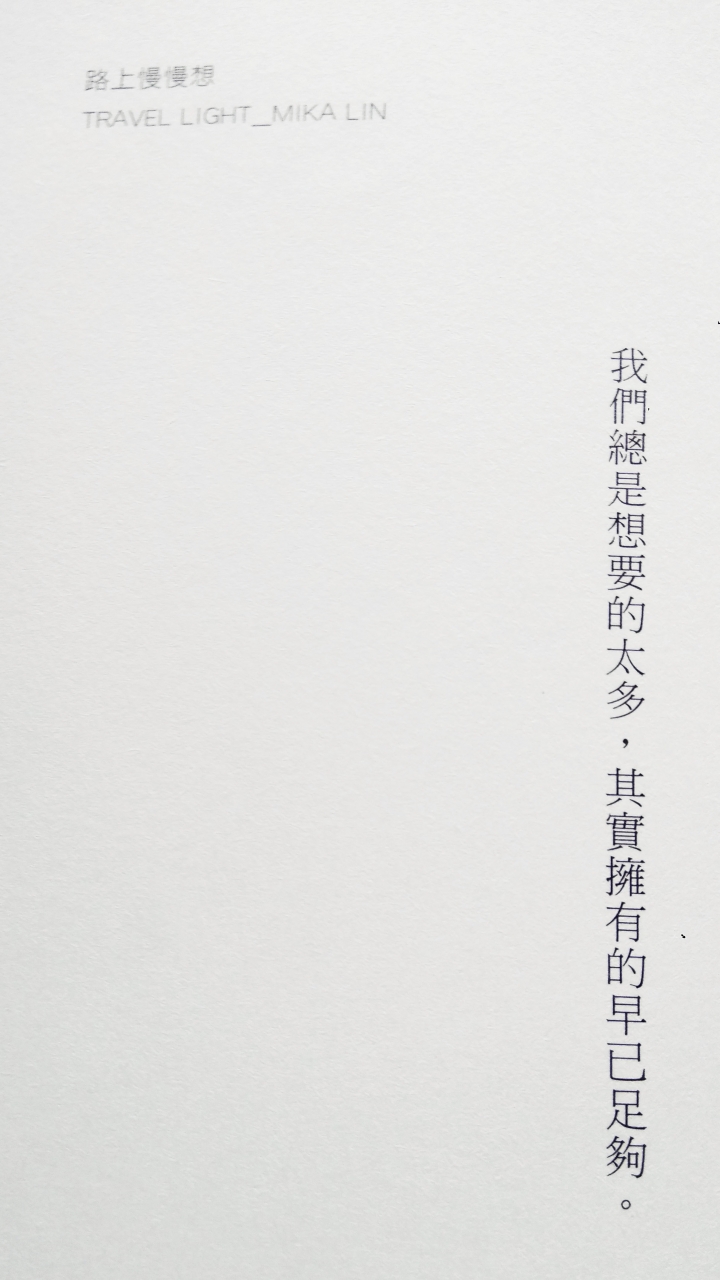 路上慢慢想
TRAVEL LIGHT_MIKA LIN
我們總是想要的太多，其實擁有的早已足夠。